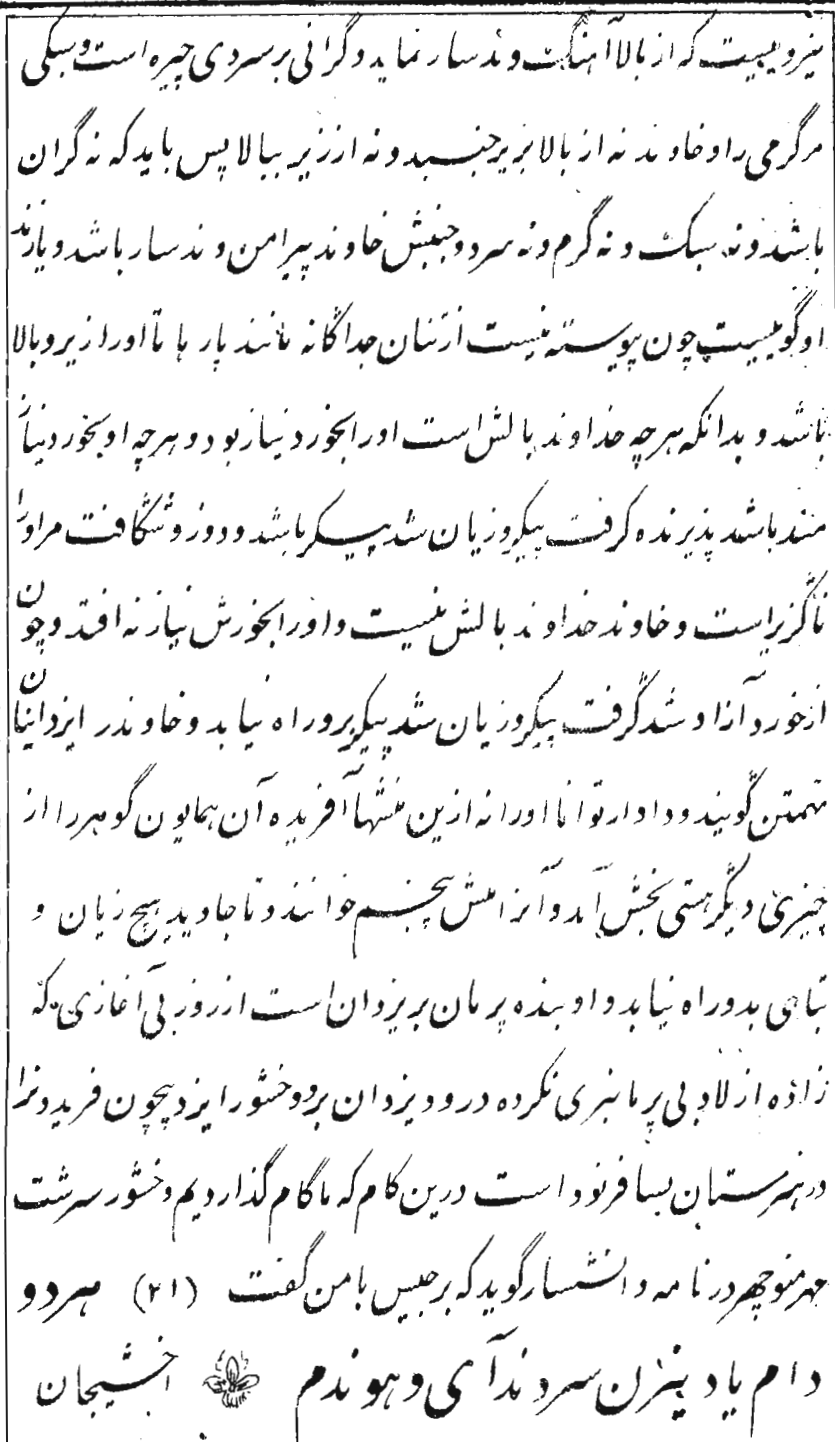 نیرویست که از بالا آهنگ وندسار نماید و گرانی بر سردی چیره است و سبکی
مر گرمی را و خاوند نه از بالا بزیر جنبد و نه از زیر ببالا پس باید که نه گران
باشد و نه سبک و نه گرم و نه سرد و جنبش خاوند پیرامن وندسار باشد و یازند
او گویست چون پیوسته نیست از تنان جداگانه مانند پارها تا او را زیر و بالا
باشد و بدانکه هرچه خداوند بالش است او را بخورد نیاز بود و هرچه او بخورد نیاز
مند باشد پذیرنده گرفت پیکر و زیان شد پیکر باشد و دوز و شگافت مر او را
ناگزیر است و خاوند خداوند بالش نیست و او را بخورش نیاز نه افتد و چون
از خورد آزاد شد گرفت پیکر و زیان شد پیکر برو راه نیابد و خاوند را یزدانیان
تهمتن گویند و دادار توانا او را نه ازین منشها آفریده آن همایون گوهر را از
چیزی دیگر هستی بخش آمد و آنرا منش پنجم خوانند و تا جاوید هیچ زیان و
تباهی بدو راه نیابد و او بنده پرمان بر یزدان است از روز بی آغازی که
زاده از لاد بی پرمانبری نکرده درود یزدان برو وخشور ایزد بیچون فریدون را
در هنرستان بسا فرنود است درین کام که ما گام گذاردیم وخشور سرشت
مهر منوچهر در نامه دانشسار گوید که برجیس با من گفت (۲۱) هردو
دام یاد ینزن سردند آی و هوندم اخشیجان